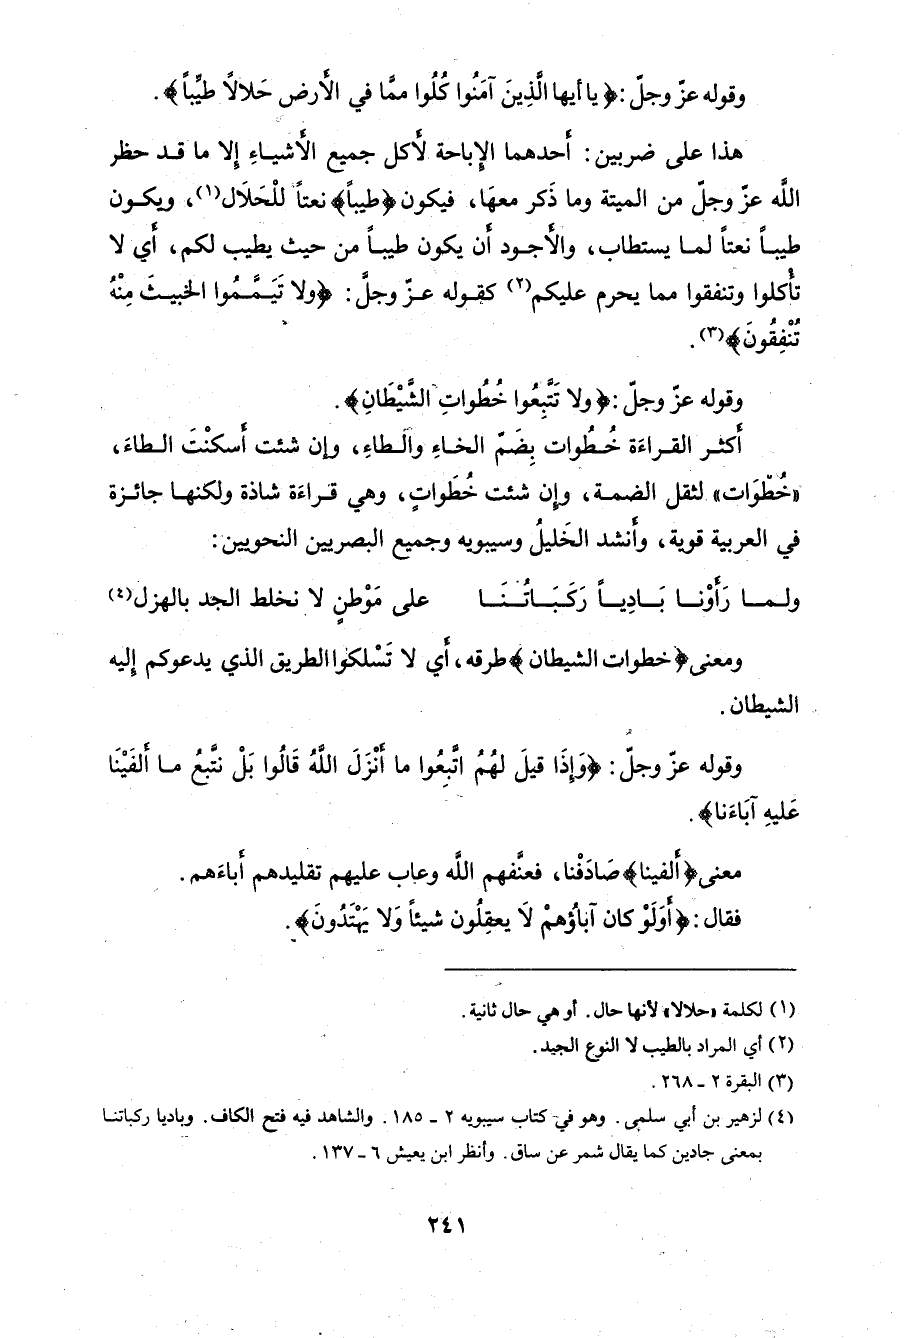 وقوله عزّ وجلّ : ﴿ يا أيها الَّذِينَ آمَنُوا كُلُوا ممَّا في الأَرض حَلالاً طيِّباً ﴾ .
هذا على ضربين : أَحدهما الإِباحة لأَكل جميع الأَشياءِ إِلا ما قد حظر
اللَّه عزّ وجلّ من الميتة وما ذَكر معهَا، فيكون ﴿طيباً﴾ نعتاً للْحَلَال(١)، ويكون
طيباً نعتاً لما يستطاب، والأَجود أَن يكون طيباً من حيث يطيب لكم، أَي لا
تأْكلوا وتنفقوا مما يحرم عليكم(٢) كقوله عزّ وجلَّ : ﴿ولا تَيَمَّمُوا الخبيثَ مِنْهُ
تُنْفِقُونَ﴾(٣) .
وقوله عزّ وجلّ : ﴿ولا تَتَّبِعُوا خُطُواتِ الشَّيْطَانِ﴾ .
أَكثر القراءَة خُطُوات بِضَمّ الخاءِ والطاءِ، وإِن شئت أَسكنْتَ الطاءَ،
«خُطْوَات» لثقل الضمة، وإِن شئت خُطَواتٍ، وهي قراءَة شاذة ولكنها جائزة
في العربية قوية، وأَنشد الخَليلُ وسيبويه وجميع البصريين النحويين :
ولما رَأَوْنا بَادِياً رَكَبَاتُنَا على مَوْطنٍ لا نخلط الجد بالهزل(٤)
ومعنى ﴿خطوات الشيطان﴾ طرقه، أَي لا تَسْلكوا الطريق الذي يدعوكم إِليه
الشيطان .
وقوله عزّ وجلّ : ﴿وَإِذَا قيلَ لهُمُ اتَّبِعُوا ما أَنْزَلَ اللَّهُ قَالُوا بَلْ نتَّبعُ ما أَلفَيْنَا
عَليهِ آبَاءَنا﴾ .
معنى ﴿أَلفينا﴾ صَادَفْنا، فعنَّفهم اللَّه وعاب عليهم تقليدهم أَباءَهم .
فقال : ﴿أَوَلَوْ كان آباؤُهمْ لَا يعقِلُون شيئاً وَلا يَهْتَدُونَ﴾ .
(١) لكلمة «حلالا» لأنها حال . أو هي حال ثانية .
(٢) أي المراد بالطيب لا النوع الجيد .
(٣) البقرة ٢ - ٢٦٨ .
(٤) لزهير بن أبي سلمى . وهو في كتاب سيبويه ٢ - ١٨٥ . والشاهد فيه فتح الكاف . وباديا ركباتنا
بمعنى جادين كما يقال شمر عن ساق . وأنظر ابن يعيش ٦ - ١٣٧ .
٢٤١